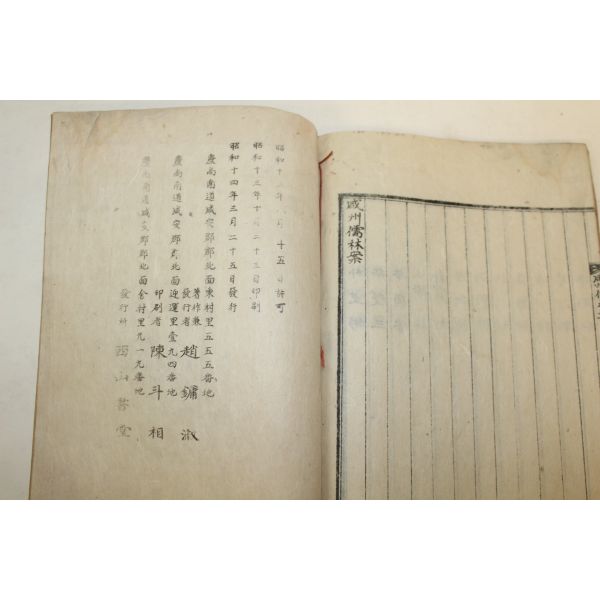 咸州儒林案
昭和十 年 月 十五日許可
昭和十三年十 月二十三日印刷
昭和十四年三月二十五日發行
慶尚南道咸安郡郡北面東村里五五五番地
著作兼
發行者 趙鏞淑
慶尚南道咸安郡郡北面迎運里壹九四番地
印刷者 陳斗相
慶尚南道咸安郡郡北面舍村里九一九番地
發行所 西山書堂